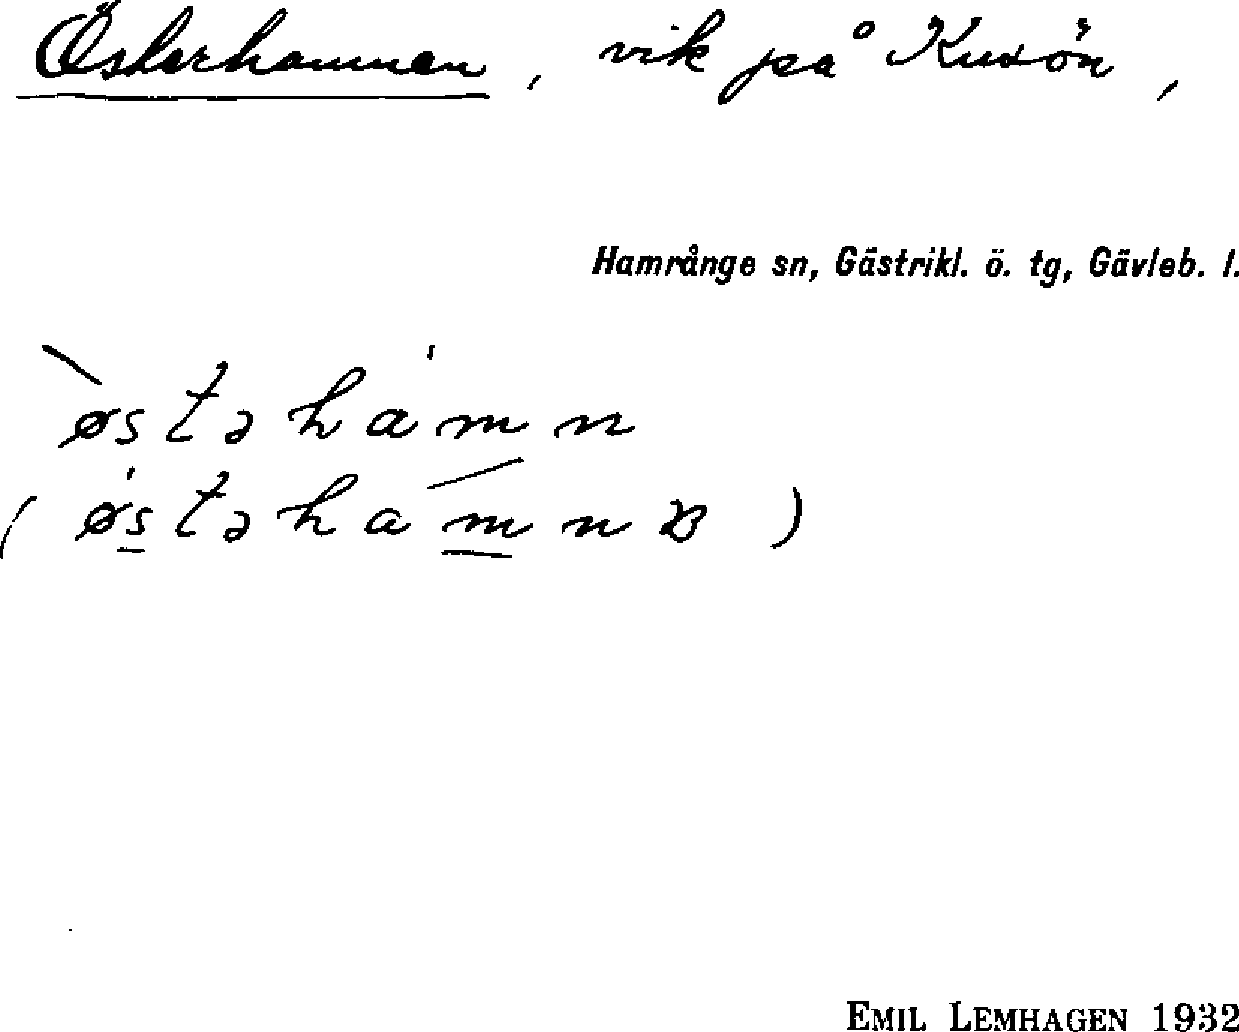 Österhamnen, vik på Kusön,
Hamrånge sn, Gästrikl. ö. tg, Gävleb. l.
østəhamn
(østəhamnɞ)
EMIL LEMHAGEN 1932